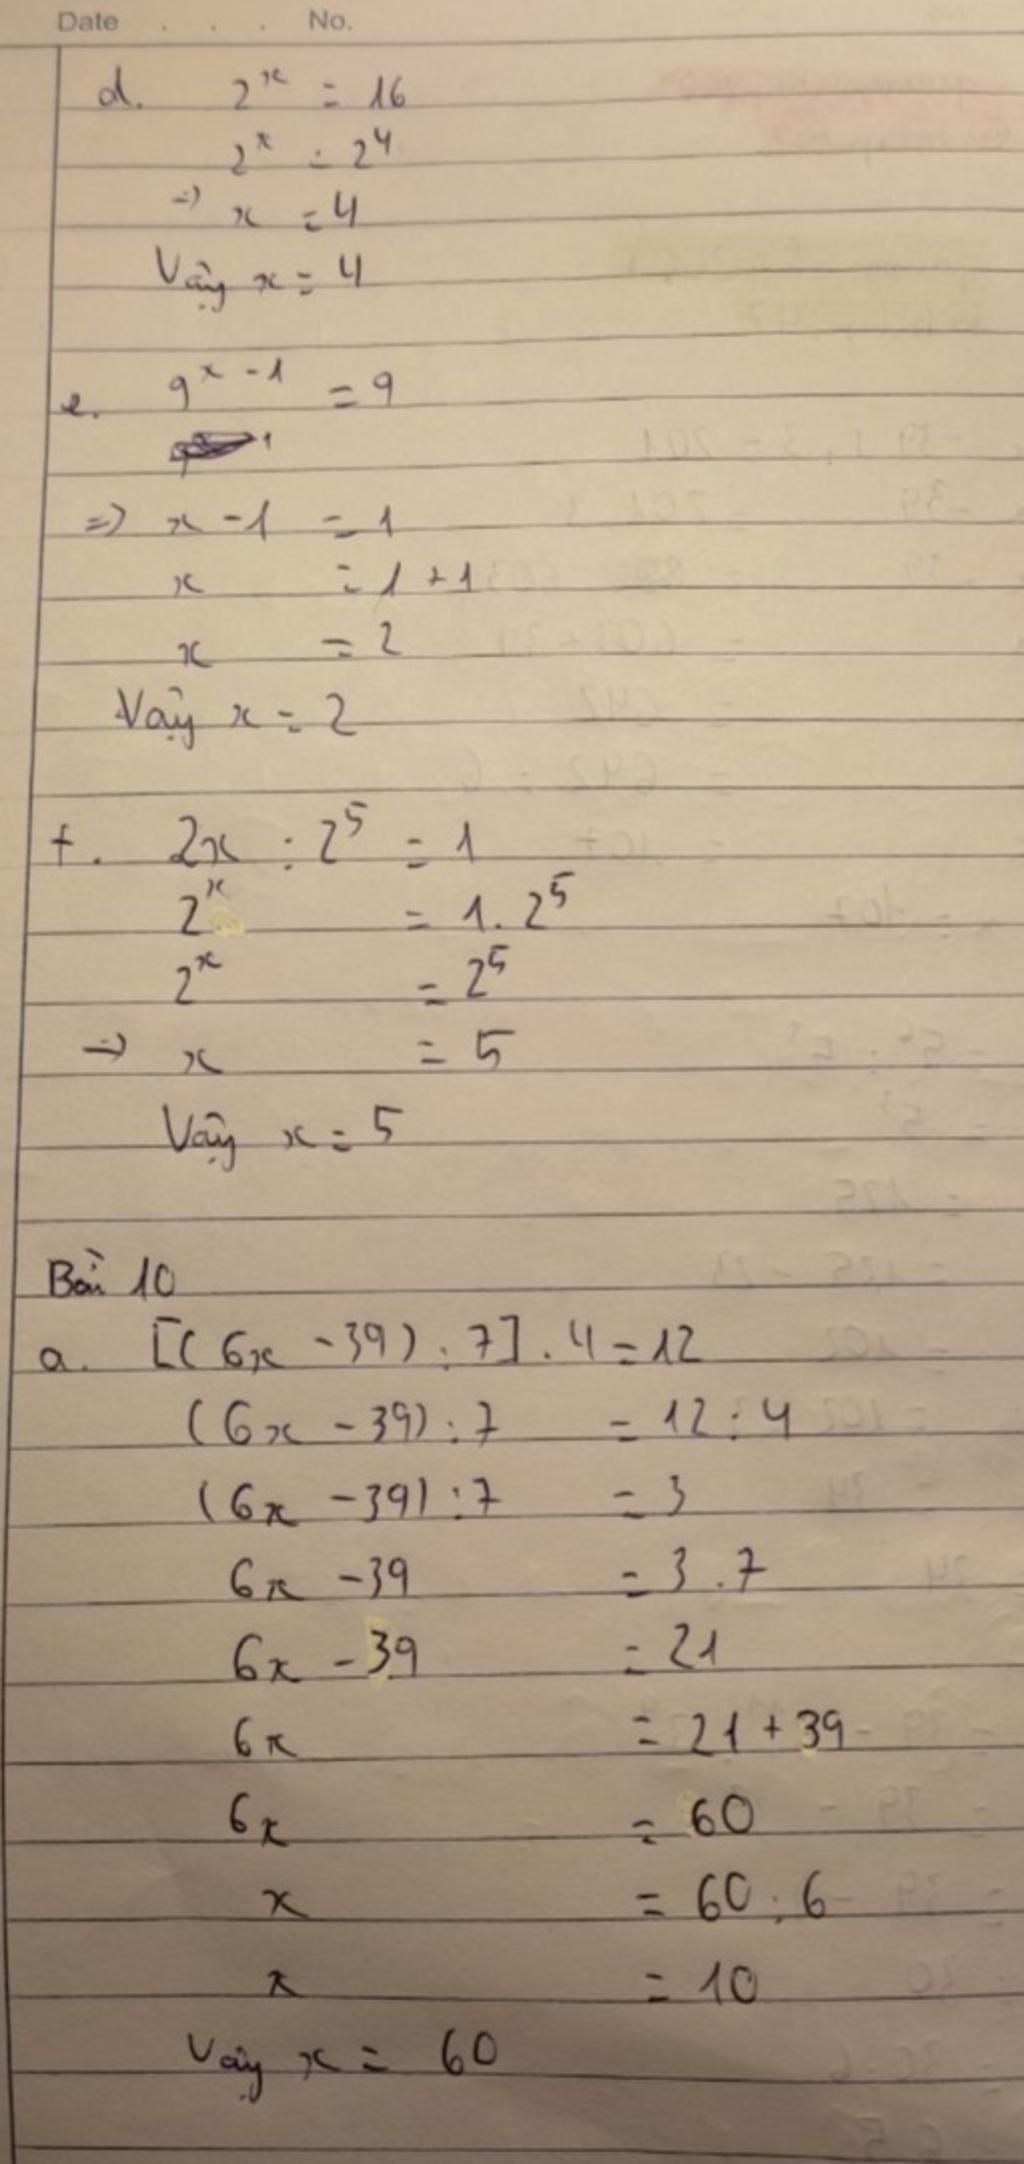 Date . . . No.
d. 2^x = 16
2^x = 2^4
=> x = 4
Vậy x = 4
e. 9^x-1 = 9
=> x - 1 = 1
x = 1 + 1
x = 2
Vậy x = 2
f. 2x : 2^5 = 1
2^x = 1. 2^5
2^x = 2^5
=> x = 5
Vậy x = 5
Bài 10
a. [(6x - 39) : 7] . 4 = 12
(6x - 39) : 7 = 12 : 4
(6x - 39) : 7 = 3
6x - 39 = 3 . 7
6x - 39 = 21
6x = 21 + 39
6x = 60
x = 60 : 6
x = 10
Vậy x = 60